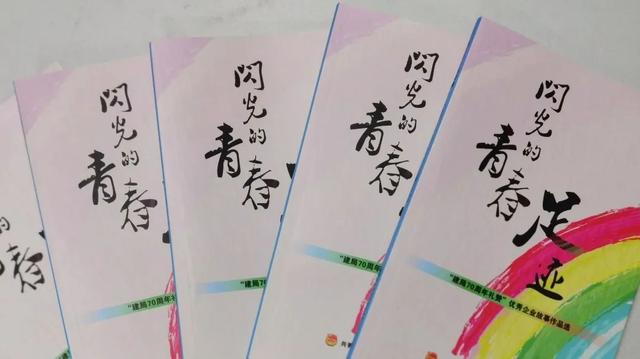 春
閃光的
青春
"建局70周年礼
閃光的
青春
"建局70周年
閃光的
青春
"建局70周年
閃光的
青春
足迹
"建局70周年礼赞"优秀企业故事作品选